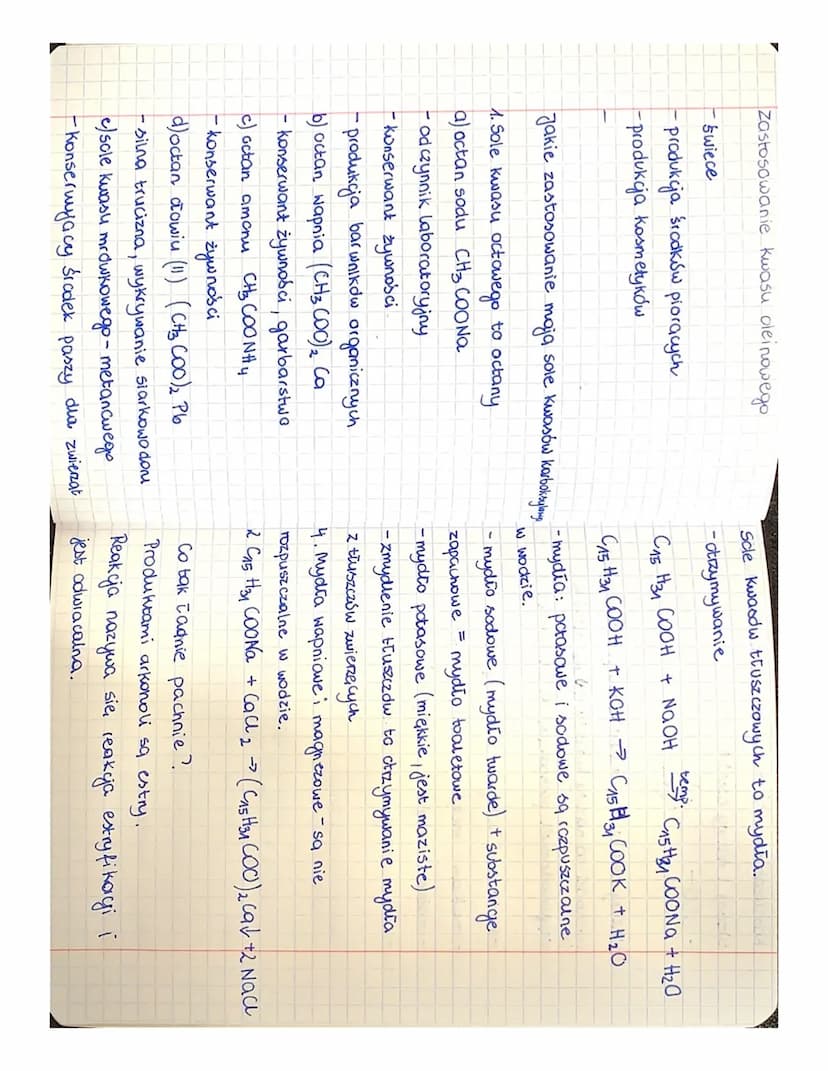 Zastosowanie kwasu oleinowego
- świece
- produkcja środków piorących
- produkcja kosmetyków
-
Jakie zastosowanie mają sole kwasów karboksylowych
1. Sole kwasu octowego to octany
a) octan sodu CH3COONa
- odczynnik laboratoryjny
- konserwant żywności
- produkcja barwników organicznych
b) octan wapnia (CH3COO)2 Ca
- konserwant żywności, garbarstwo
c) octan amonu CH3COONH4
- konserwant żywności
d) octan ołowiu (II) (CH3COO)2 Pb
- silna trucizna, wykrywanie siarkowodoru
e) sole kwasu mrówkowego - metanowego
- Konserwujący środek paszy dla zwierząt
Sole kwasów tłuszczowych to mydła.
- otrzymywanie
C15H31COOH + NaOH temp.→ C15H31COONa + H2O
C15H31COOH + KOH → C15H31COOK + H2O
- mydła: potasowe i sodowe są rozpuszczalne
w wodzie.
- mydło sodowe (mydło twarde) + substancje
zapachowe = mydło toaletowe
- mydło potasowe (miękkie, jest maziste)
- zmydlenie tłuszczów to otrzymywanie mydła
z tłuszczów zwierzęcych
4. Mydła wapniowe i magnezowe - są nie
rozpuszczalne w wodzie.
2 C15H31COONa + CaCl2 → (C15H31COO)2Ca↓ + 2 NaCl
Co tak ładnie pachnie?
Produktami alkoholi są estry.
Reakcja nazywa się reakcją estryfikacji i
jest odwracalna.